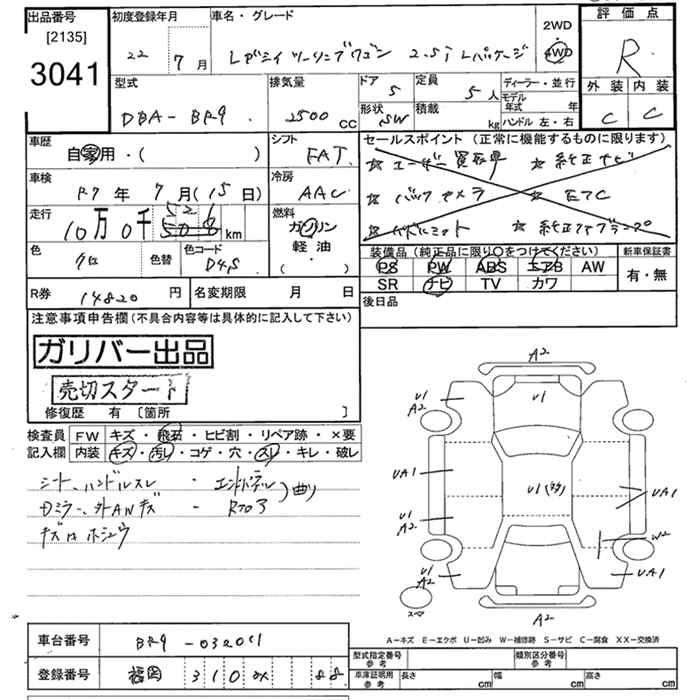 出品番号
[2135]
3041
初度登録年月
22 7月
車名・グレード
レガシィ ツーリングワゴン 2.5i Lパッケージ
2WD
4WD
評価点
R
外装 内装
C C
型式
DBA-BR9
排気量
2500 CC
ドア 5
定員 5人
形状 SW
積載 kg
ディーラー・並行
モデル年式 年
ハンドル 左・右
車歴
自家用・( )
シフト
FAT
セールスポイント (正常に機能するものに限ります)
☆ユーザー買取車 ☆純正ナビ
☆バックカメラ ☆ETC
☆純正アルミ
車検
R7年7月(15日)
冷房
AAC
走行
10万0千 521 508 km
燃料
ガソリン
軽油・
( )
色
色替
色コード
D4S
装備品 (純正品に限り○をつけてください)
新車保証書
PS PW ABS エアB AW
有・無
SR ナビ TV カワ
R券 14820円
名変期限 月 日
後日品
注意事項申告欄 (不具合内容等は具体的に記入して下さい)
ガリバー出品
売切スタート
修復歴 有 〔箇所 〕
検査員 FW キズ・飛石・ヒビ割・リペア跡・×要
記入欄 内装 キズ・汚レ・コゲ・穴・スレ・キレ・破レ
シート、ハンドルスレ ・エンドパネル
Dミラー、外ANキズ - Rフロア 曲り
キズ ホシュウ
A2
U1 A2
U1
UA1
U1(多多)
UA1
U1 A2
W2
U1 A2
UA1
スペア
A2
A-キズ E-エクボ U-凹み W-補修跡 S-サビ C-腐食 XX-交換済
車台番号 BR9-032011
型式指定番号 参考
類別区分番号 参考
登録番号 福岡 310 88
車庫証明用 参考 長さ cm 幅 cm 高さ cm